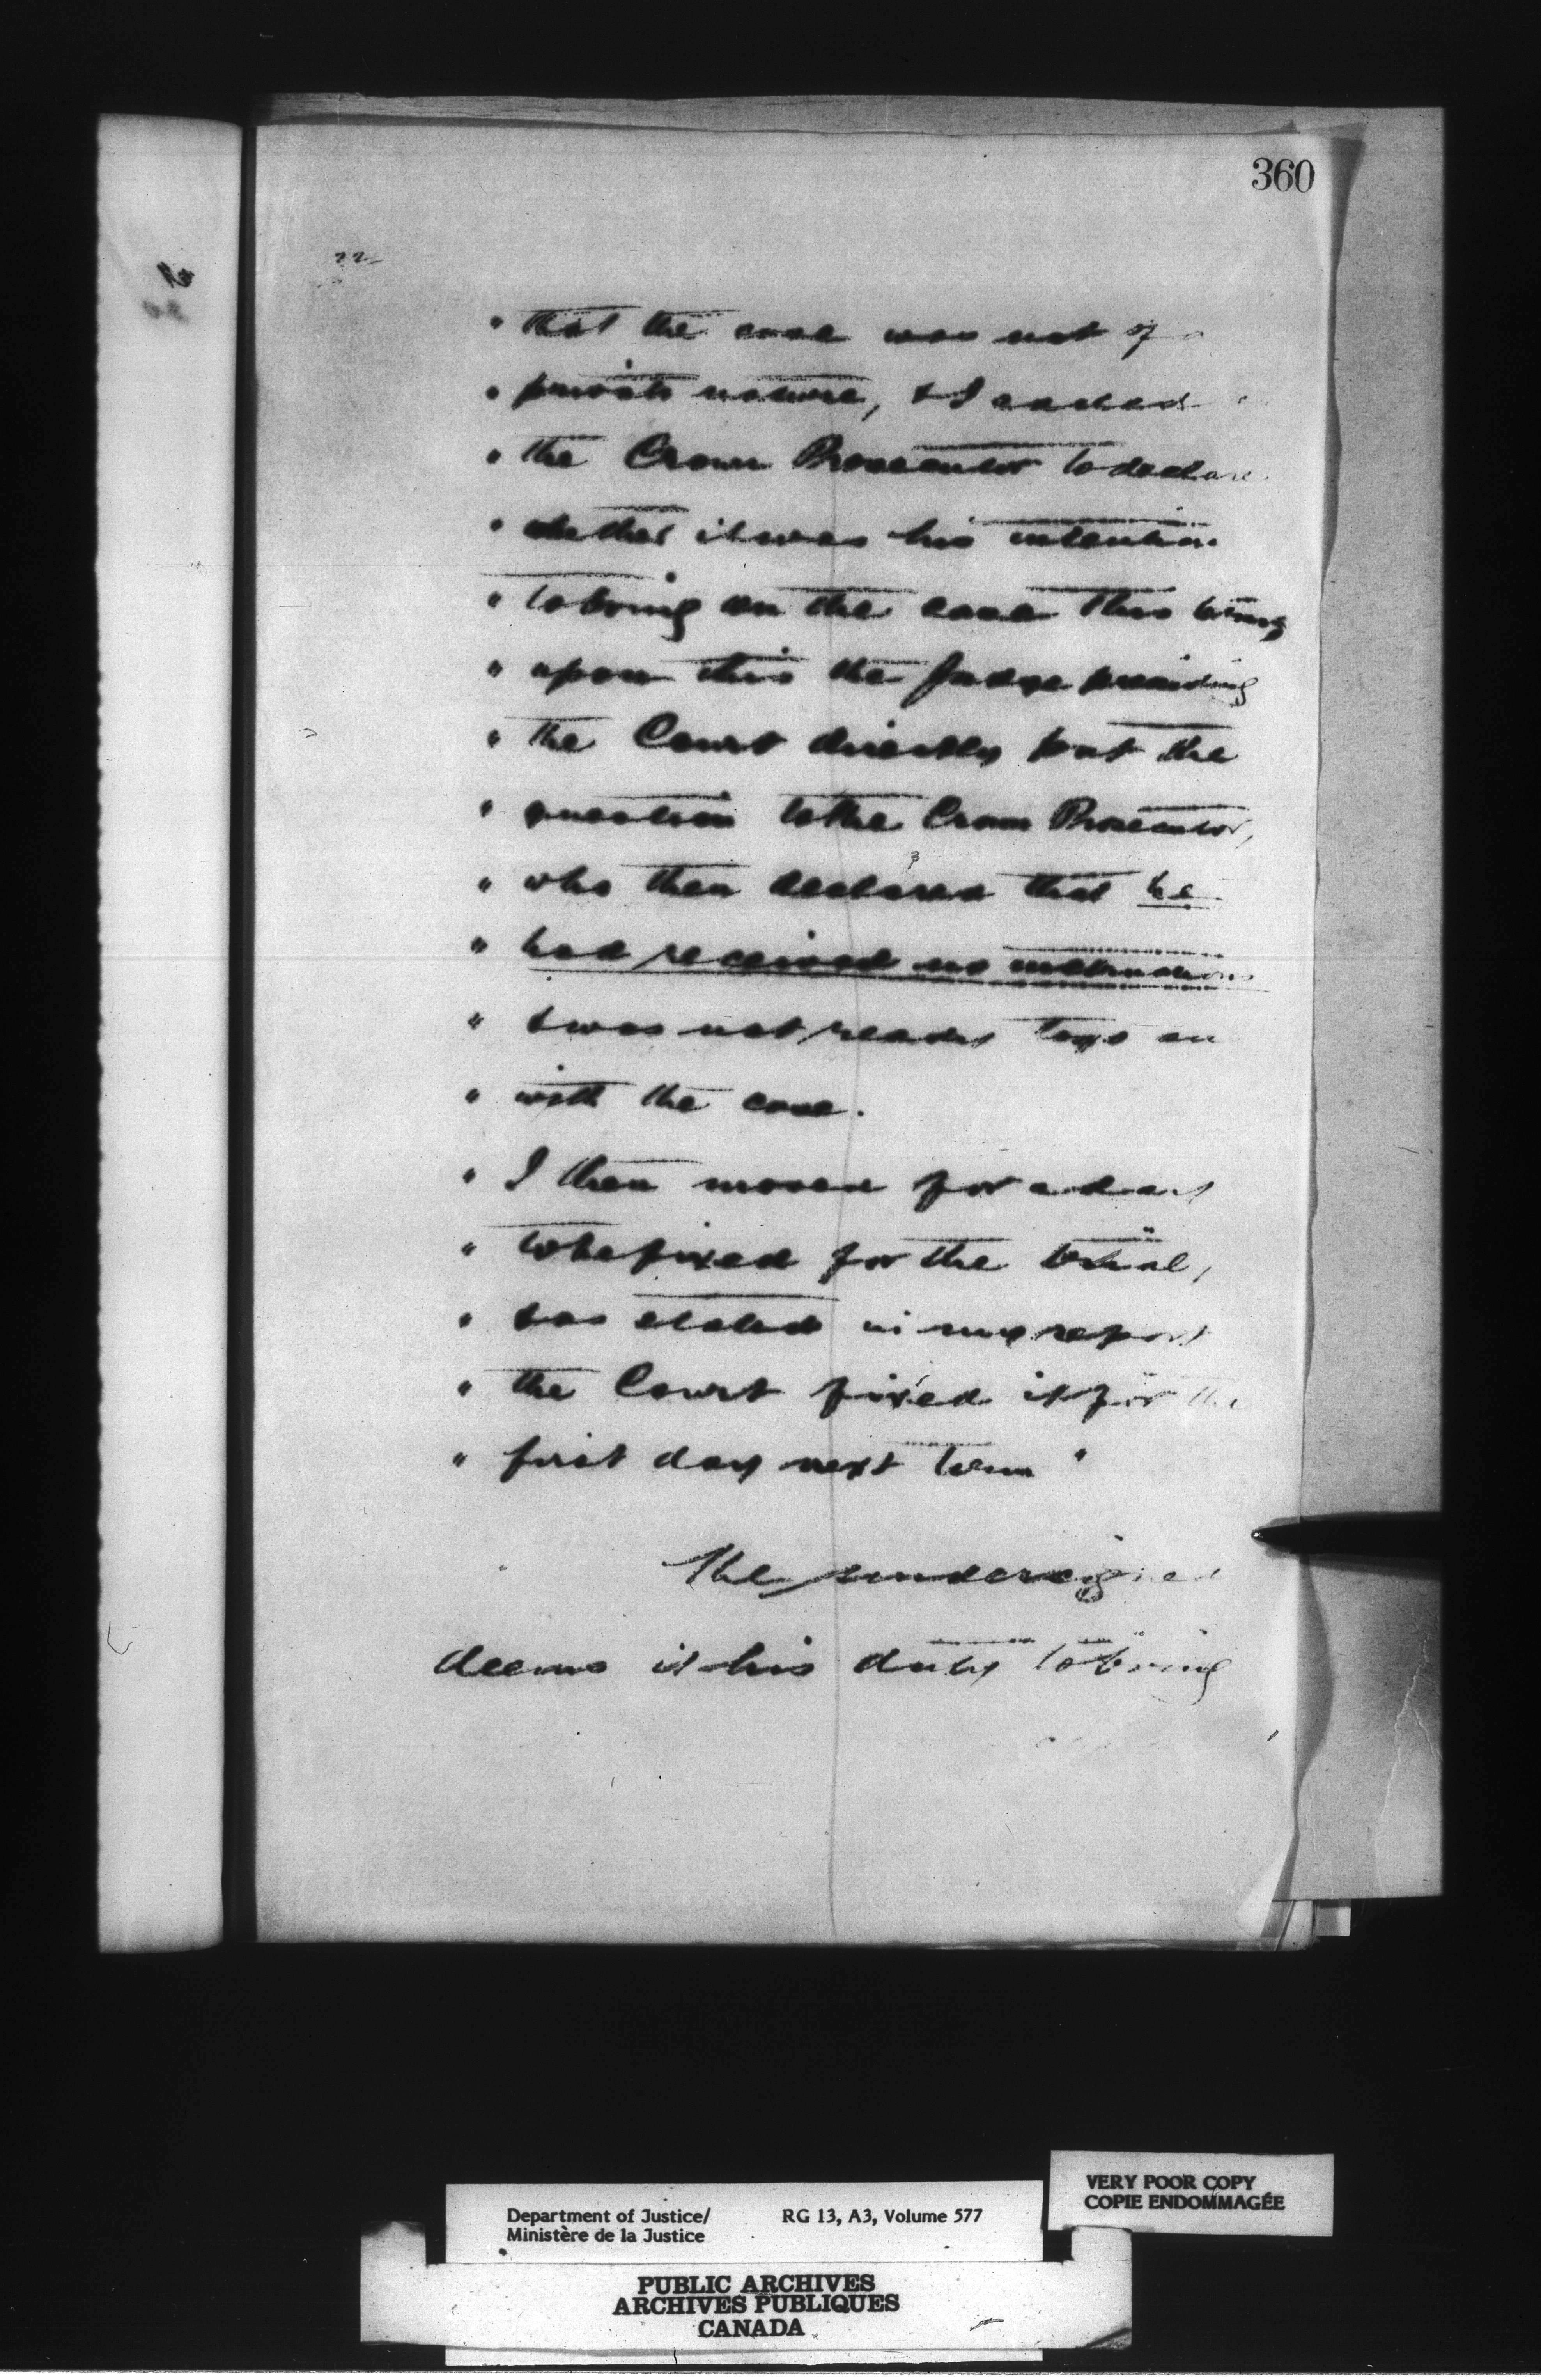 360
22
" that the case was not of a
" private nature, & I asked
" the Crown Prosecutor to declare
" whether it was his intention
" to bring on the case this term,
" upon this the Judge presiding
" the Court directly put the
" question to the Crown Prosecutor,
" who then declared that he
" had received no instructions
" & was not ready to go on
" with the case.
" I then moved for a day
" to be fixed for the trial,
" & as stated in my report
" the Court fixed it for the
" first day next term "
The undersigned
deems it his duty to bring
Department of Justice/
Ministère de la Justice
RG 13, A3, Volume 577
VERY POOR COPY
COPIE ENDOMMAGÉE
PUBLIC ARCHIVES
ARCHIVES PUBLIQUES
CANADA